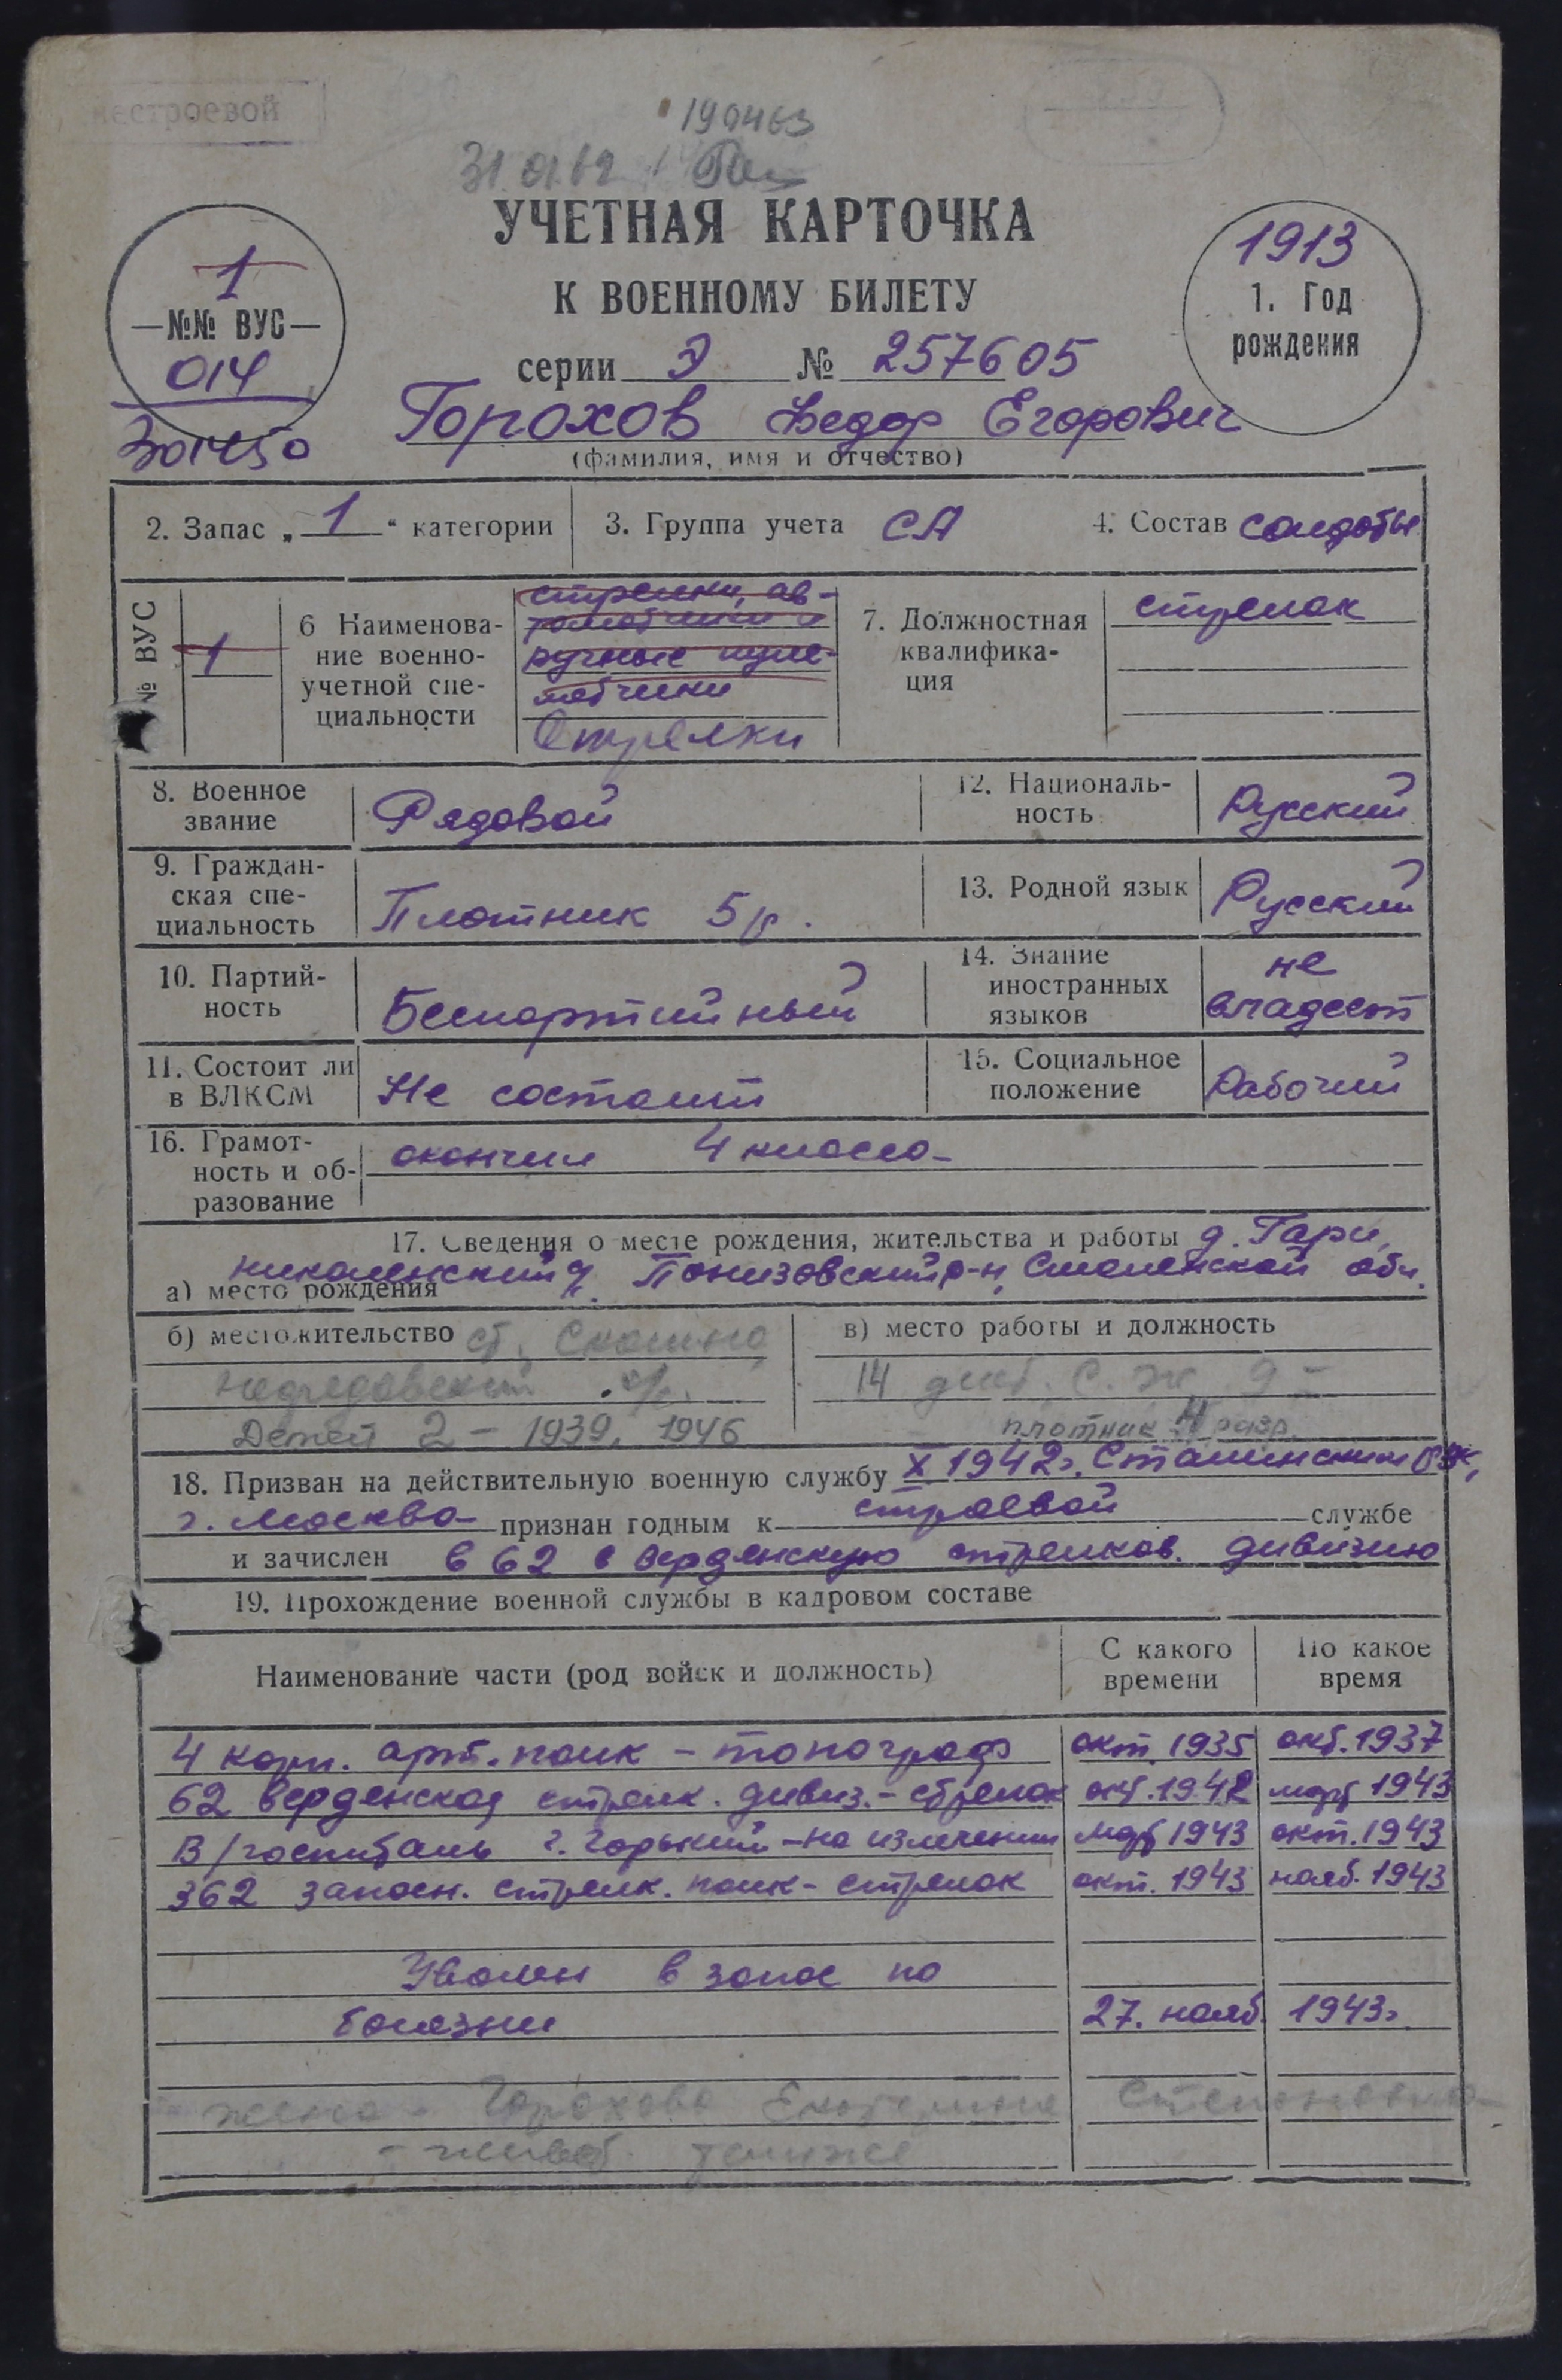 нестроевой
190463
31.01.62
УЧЕТНАЯ КАРТОЧКА
К ВОЕННОМУ БИЛЕТУ
серии Э № 257605
1
—№№ ВУС—
014
1913
1. Год
рождения
Горохов Федор Егорович
(фамилия, имя и отчество)
2. Запас „1“ категории
3. Группа учета СА
4. Состав солдаты
№ ВУС
1
6 Наименова-
ние военно-
учетной спе-
циальности
стрелки, ав-
томатчики и
ручные пуле-
метчики
Стрелки
7. Должностная
квалифика-
ция
стрелок
8. Военное
звание
Рядовой
12. Националь-
ность
Русский
9. Граждан-
ская спе-
циальность
Плотник 5 р.
13. Родной язык
Русский
10. Партий-
ность
Беспартийный
14. Знание
иностранных
языков
не
владеет
11. Состоит ли
в ВЛКСМ
Не состоит
15. Социальное
положение
Рабочий
16. Грамот-
ность и об-
разование
окончил 4 класса
17. Сведения о месте рождения, жительства и работы д. Гари,
а) место рождения
Понизовский р-н, Смоленской обл.
б) местожительство ст.
Детей 2 – 1939, 1946
в) место работы и должность
14 дист.
плотник 4 разр.
18. Призван на действительную военную службу X 1942г. Сталинским РВК,
г. Москва признан годным к строевой службе
и зачислен в 62 верденскую стрелков. дивизию
19. Прохождение военной службы в кадровом составе
Наименование части (род войск и должность)
С какого
времени
По какое
время
4 корп. арт. полк – топограф окт. 1935 окт. 1937
62 верденская стрелк. дивиз. – стрелок окт. 1942 март 1943
В/госпиталь г. Горький – на излечении март 1943 окт. 1943
362 запасн. стрелк. полк – стрелок окт. 1943 нояб. 1943
Уволен в запас по
болезни 27. нояб. 1943г.
жена – Горохова Екатерина Степановна –
– живет там же